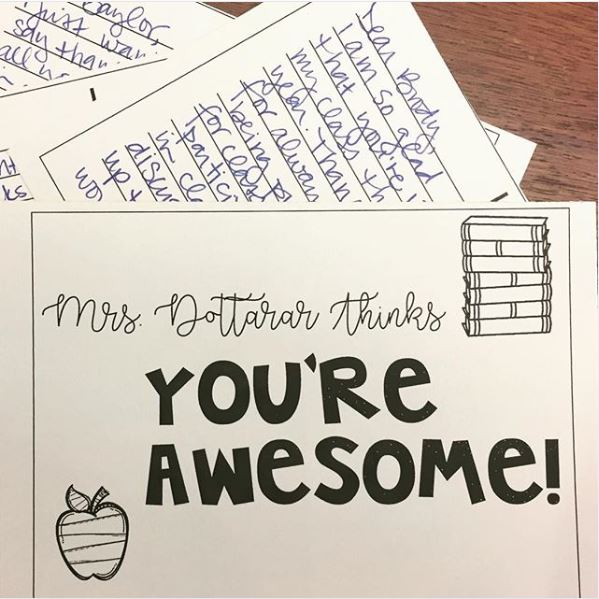 Taylor,
I just wan
say than
all
Dear Brody,
I am so glad
that you're i
my class th
year. Than
for always
being p
for class
partici
in cla
discu
up t
wo
nt
ks
Mrs. Dottarar thinks
YOU'RE
AWESOME!